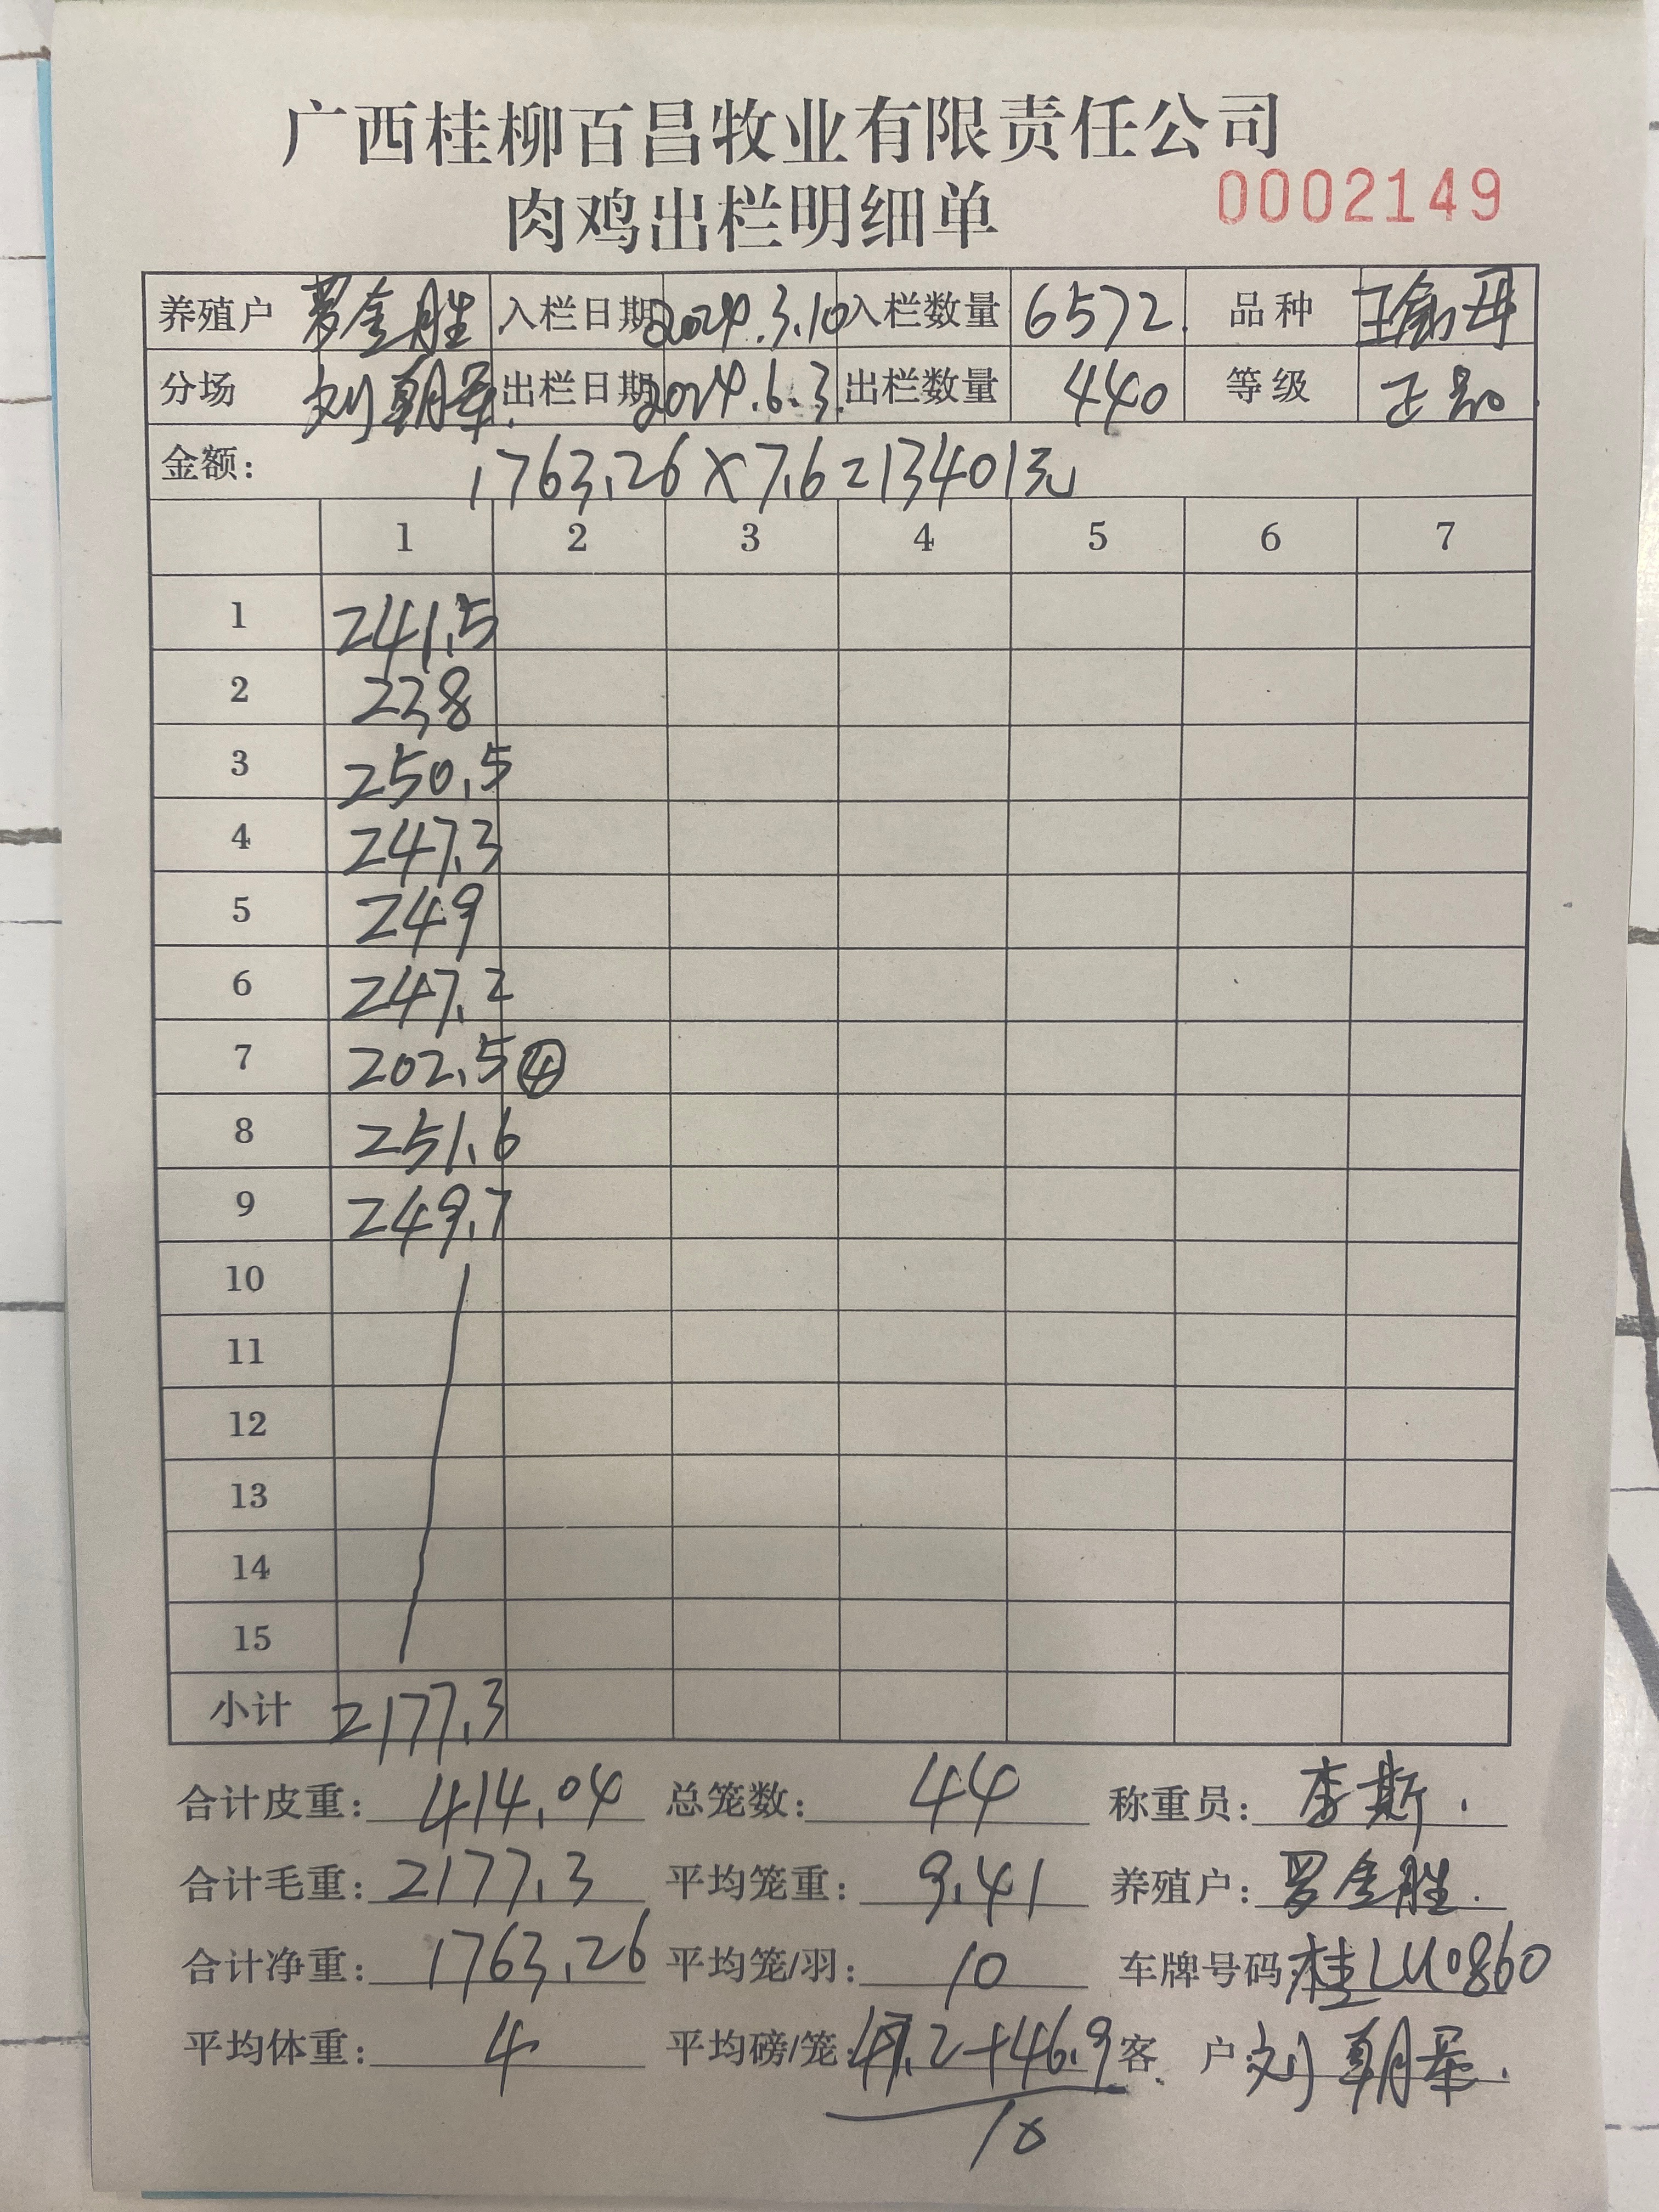 广西桂柳百昌牧业有限责任公司
肉鸡出栏明细单 0002149
养殖户 罗金胜 入栏日期 2024.3.10 入栏数量 6572. 品种
分场 刘朝 出栏日期 2024.6.3. 出栏数量 440 等级 正品
金额: 1763.26×7.6=13401元
1 2 3 4 5 6 7
1 241.5
2 238
3 250.5
4 247.3
5 249
6 247.2
7 202.5④
8 251.6
9 249.7
10
11
12
13
14
15
小计 2177.3
合计皮重: 414.04 总笼数: 44 称重员: 李斯.
合计毛重: 2177.3 平均笼重: 9.41 养殖户: 罗金胜.
合计净重: 1763.26 平均笼/羽: 10 车牌号码: 桂LU0860
平均体重: 4 平均磅/笼: 47.2+46.9 客 户: 刘朝
10